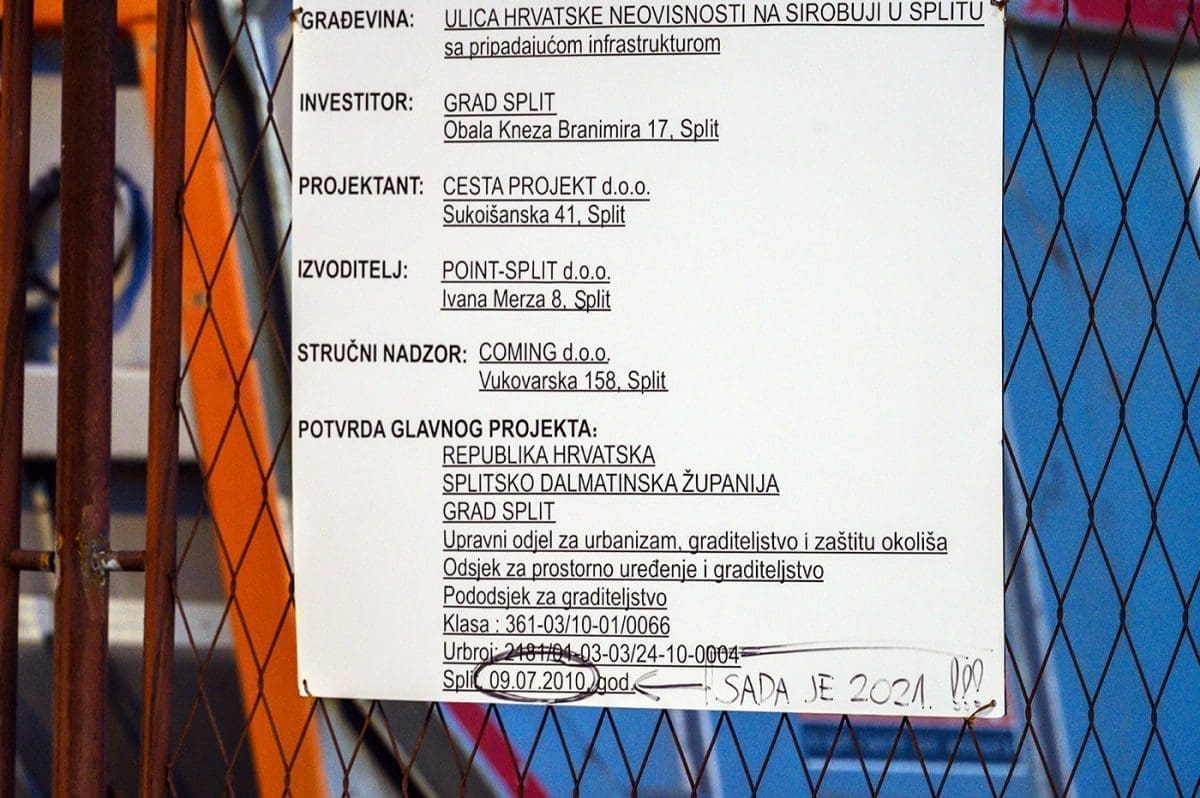 GRAĐEVINA: ULICA HRVATSKE NEOVISNOSTI NA SIROBUJI U SPLITU
sa pripadajućom infrastrukturom
INVESTITOR: GRAD SPLIT
Obala Kneza Branimira 17, Split
PROJEKTANT: CESTA PROJEKT d.o.o.
Sukoišanska 41, Split
IZVODITELJ: POINT-SPLIT d.o.o.
Ivana Merza 8, Split
STRUČNI NADZOR: COMING d.o.o.
Vukovarska 158, Split
POTVRDA GLAVNOG PROJEKTA:
REPUBLIKA HRVATSKA
SPLITSKO DALMATINSKA ŽUPANIJA
GRAD SPLIT
Upravni odjel za urbanizam, graditeljstvo i zaštitu okoliša
Odsjek za prostorno uređenje i graditeljstvo
Pododsjek za graditeljstvo
Klasa : 361-03/10-01/0066
Urbroj: 2181/01-03-03/24-10-0004
Split 09.07.2010. god. SADA JE 2021. !!!